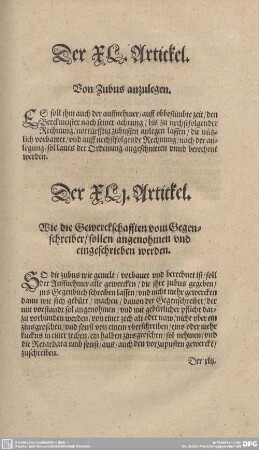 Der XL. Artickel.
Von Zubus anzulegen.
ES soll ihm auch der auffnehmer / auff obbestimbte zeit / den
Berckmeister nach seiner achtung / bis zu nechstfolgender
Rechnung / notturfftig zubussen anlegen lassen / die nütz-
lich vorbawet / vnd auff nechstfolgende Rechnung / noch der an-
legung / sol lauts der Ordenung angeschnitten vnnd berechent
werden.
Der XLj. Artickel.
Wie die Gewerckschafften vom Gegen-
schreiber / sollen angenohmen vnd
eingeschrieben werden.
SO die zubus wie gemelt / vorbauet vnd berechnet ist / soll
der Auffnehmer alle gewercken / die ihre zubus gegeben /
ins Gegenbuch schreiben lassen / vnd nicht mehr gewercken
dann wie sich gebürt / machen / dauon der Gegenschreiber / der
mit vorstande sol angenohmen / vnd mit gebürlicher pflicht dar-
zu vorbunden werden / von einer zech alt oder naw / nicht vber ein
zinsgroschen / vnd sonst von einem vberschreiben / eins oder mehr
kuckus in einer zechen / ein halben zinsgroschen / sol nehmen / vnd
die Retardata vmb sonst / aus / auch den vorzupusten gewerckē /
zuschreiben.
Der xlij.
DFG